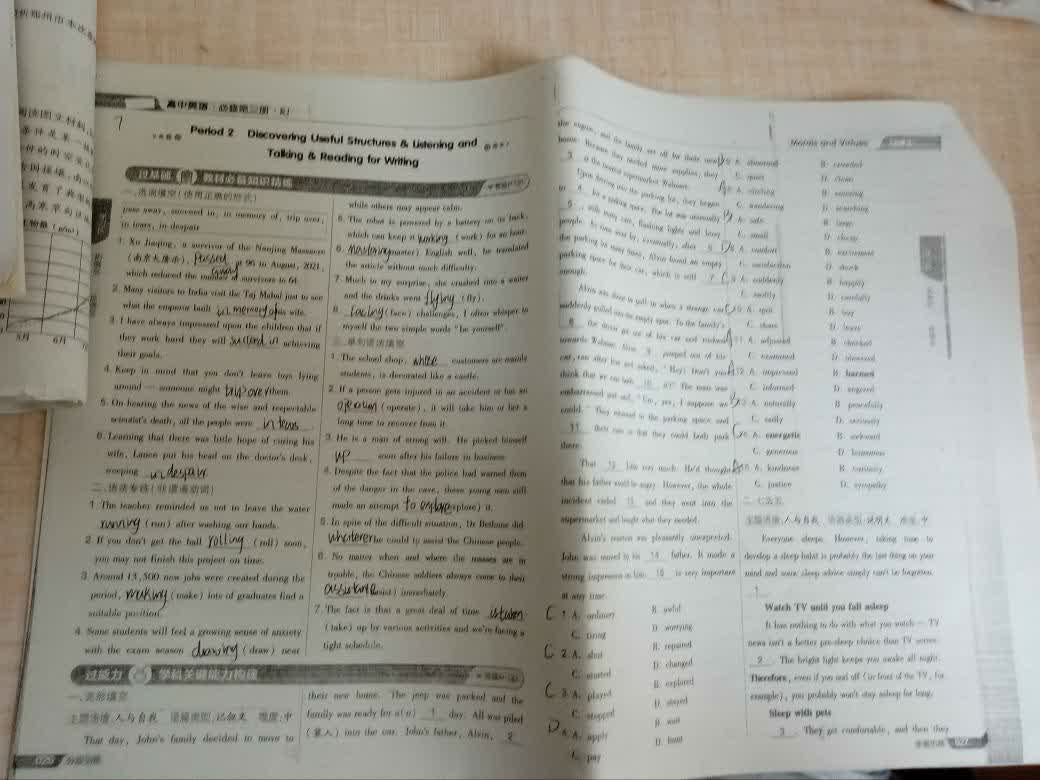 高中英语·必修第三册·RJ
7
Period 2 Discovering Useful Structures & Listening and
Talking & Reading for Writing
过基础 教材必备知识精练
一、选词填空(使用正确的形式)
pass away, succeed in, in memory of, trip over,
in tears, in despair
1. Xu Jiaqing, a survivor of the Nanjing Massacre
(南京大屠杀), passed away at 96 in August, 2021,
which reduced the number of survivors to 64.
2. Many visitors to India visit the Taj Mahal just to see
what the emperor built in memory of his wife.
3. I have always impressed upon the children that if
they work hard they will succeed in achieving
their goals.
4. Keep in mind that you don't leave toys lying
around — someone might trip over them.
5. On hearing the news of the wise and respectable
scientist's death, all the people were in tears.
6. Learning that there was little hope of curing his
wife, Lance put his head on the doctor's desk,
weeping in despair.
二、语法专练(非谓语动词)
1. The teacher reminded us not to leave the water
running (run) after washing our hands.
2. If you don't get the ball rolling (roll) soon,
you may not finish this project on time.
3. Around 13,500 new jobs were created during the
period, making (make) lots of graduates find a
suitable position.
4. Some students will feel a growing sense of anxiety
with the exam season drawing (draw) near
while others may appear calm.
5. The robot is powered by a battery on its back,
which can keep it working (work) for an hour.
6. Mastering (master) English well, he translated
the article without much difficulty.
7. Much to my surprise, she crashed into a waiter
and the drinks went flying (fly).
8. Facing (face) challenges, I often whisper to
myself the two simple words "be yourself".
三、单句语法填空
1. The school shop, whose customers are mainly
students, is decorated like a castle.
2. If a person gets injured in an accident or has an
operation (operate), it will take him or her a
long time to recover from it.
3. He is a man of strong will. He picked himself
up soon after his failure in business.
4. Despite the fact that the police had warned them
of the danger in the cave, these young men still
made an attempt to explore (explore) it.
5. In spite of the difficult situation, Dr Bethune did
whatever he could to assist the Chinese people.
6. No matter when and where the masses are in
trouble, the Chinese soldiers always come to their
assistance (assist) immediately.
7. The fact is that a great deal of time is taken
(take) up by various activities and we're facing a
tight schedule.
过能力 学科关键能力构建
一、完形填空
主题语境:人与自我 语篇类型:记叙文 难度:中
That day, John's family decided to move to
their new home. The jeep was packed and the
family was ready for a(n) 1 day. All was piled
(塞入) into the car. John's father, Alvin, 2
Morals and Values
the engine, and the family set off for their new
home. Because they needed more supplies, they
3 at the nearest supermarket Walmart.
Upon driving into the parking lot, they began
to 4 for a parking space. The lot was unusually
5, with many cars, flashing lights and busy
parking space for their car, which is still
enough.
Alvin was about to pull in when a strange car
suddenly pulled into the empty spot. To the family's
8, the driver got out of his car and rushed
towards Walmart. Alvin 9 jumped out of his
car, ran after him and asked, "Hey! Don't you
think that we can both 10 it?" The man was
embarrassed but said, "Um, yes, I suppose we
could." They returned to the parking space and
11 their cars so that they could both park
there.
That 12 John very much. He'd thought
that his father would be angry. However, the whole
incident ended 13 and they went into the
supermarket and bought what they needed.
Alvin's reaction was pleasantly unexpected.
John was moved by his 14 father. It made a
strong impression on him. 15 is very important
at any time.
C 1. A. ordinary B. awful
C. tiring D. worrying
C 2. A. shut B. repaired
C. started D. changed
C 3. A. played B. explored
C. stopped D. stayed
D 4. A. apply B. wait
C. pay D. hunt
5. A. abnormal B. crowded
C. quiet D. clean
C. wandering D. searching
C. small D. cheap
8. A. comfort B. excitement
C. satisfaction D. shock
9. A. suddenly B. happily
C. easily D. carefully
10. A. spot B. buy
C. share D. leave
11. A. adjusted B. checked
C. examined D. observed
12. A. impressed B. harmed
C. informed D. angered
13. A. naturally B. peacefully
C. easily D. seriously
14. A. energetic B. awkward
C. generous D. humorous
15. A. kindness B. curiosity
C. justice D. sympathy
二、七选五
主题语境:人与自我 语篇类型:说明文 难度:中
Everyone sleeps. However, taking time to
develop a sleep habit is probably the last thing on your
mind and some sleep advice simply can't be forgotten.
1
Watch TV until you fall asleep
It has nothing to do with what you watch — TV
news isn't a better pre-sleep choice than TV series.
2 The bright light keeps you awake all night.
Therefore, even if you nod off (in front of the TV, for
example), you probably won't stay asleep for long.
Sleep with pets
3 They get comfortable, and then they